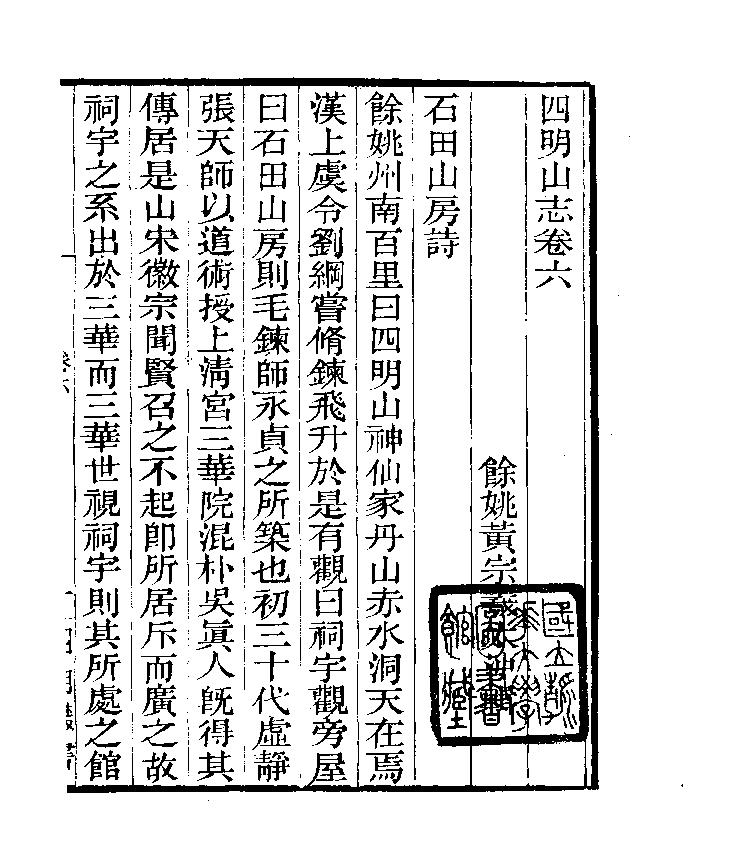 四明山志卷六
餘姚黃宗羲
石田山房詩
餘姚州南百里曰四明山神仙家丹山赤水洞天在焉
漢上虞令劉綱嘗脩鍊飛升於是有觀曰祠宇觀旁屋
曰石田山房則毛鍊師永貞之所築也初三十代虛靜
張天師以道術授上淸宮三華院混朴吳眞人旣得其
傳居是山宋徽宗聞賢召之不起卽所居斥而廣之故
祠宇之系出於三華而三華世視祠宇則其所處之館